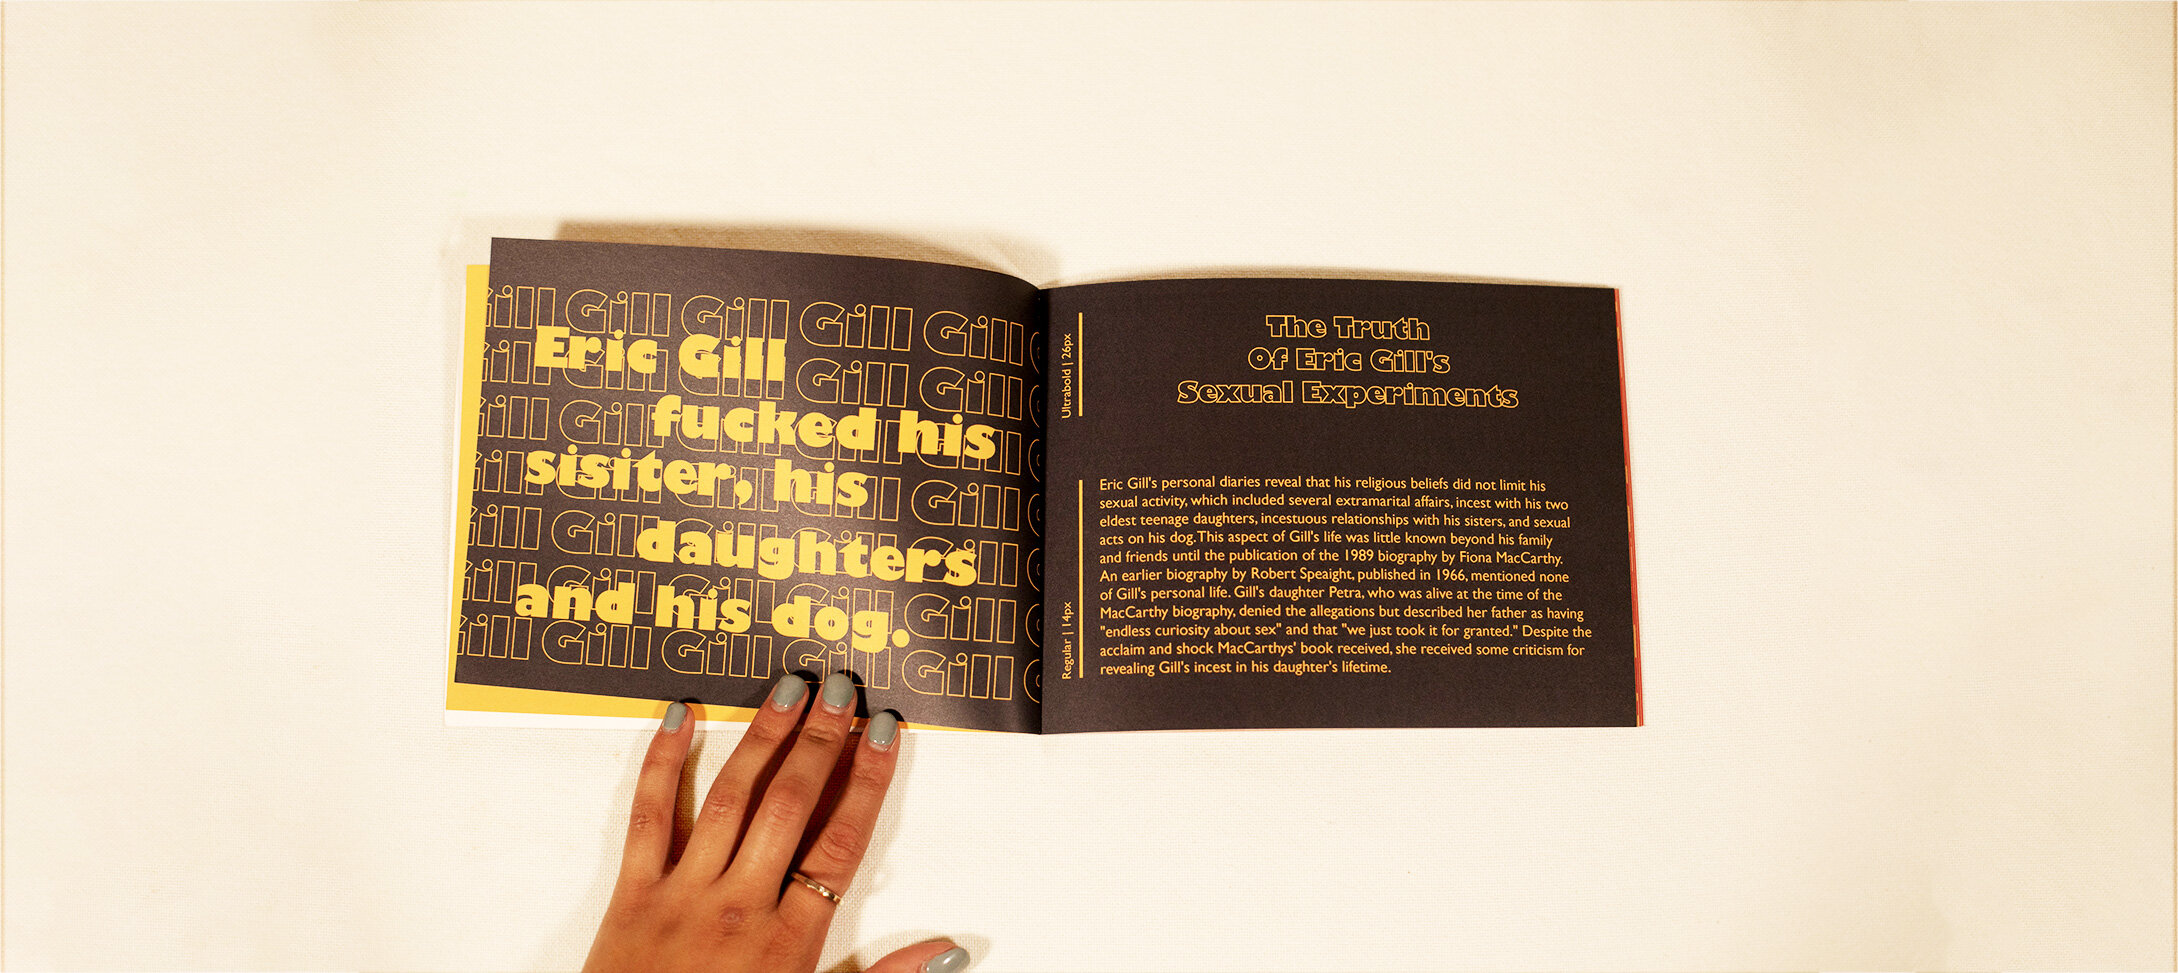 Gill Gill Gill Gill Gill
Eric Gill
fucked his
sisiter, his
daughters
and his dog.
Ultrabold | 26px
The Truth
Of Eric Gill's
Sexual Experiments
Regular | 14px
Eric Gill's personal diaries reveal that his religious beliefs did not limit his
sexual activity, which included several extramarital affairs, incest with his two
eldest teenage daughters, incestuous relationships with his sisters, and sexual
acts on his dog. This aspect of Gill's life was little known beyond his family
and friends until the publication of the 1989 biography by Fiona MacCarthy.
An earlier biography by Robert Speaight, published in 1966, mentioned none
of Gill's personal life. Gill's daughter Petra, who was alive at the time of the
MacCarthy biography, denied the allegations but described her father as having
"endless curiosity about sex" and that "we just took it for granted." Despite the
acclaim and shock MacCarthys' book received, she received some criticism for
revealing Gill's incest in his daughter's lifetime.